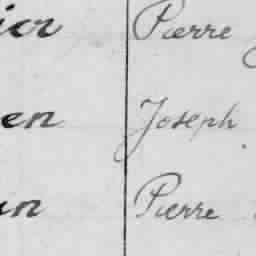 ier Pierre
en Joseph
un Pierre